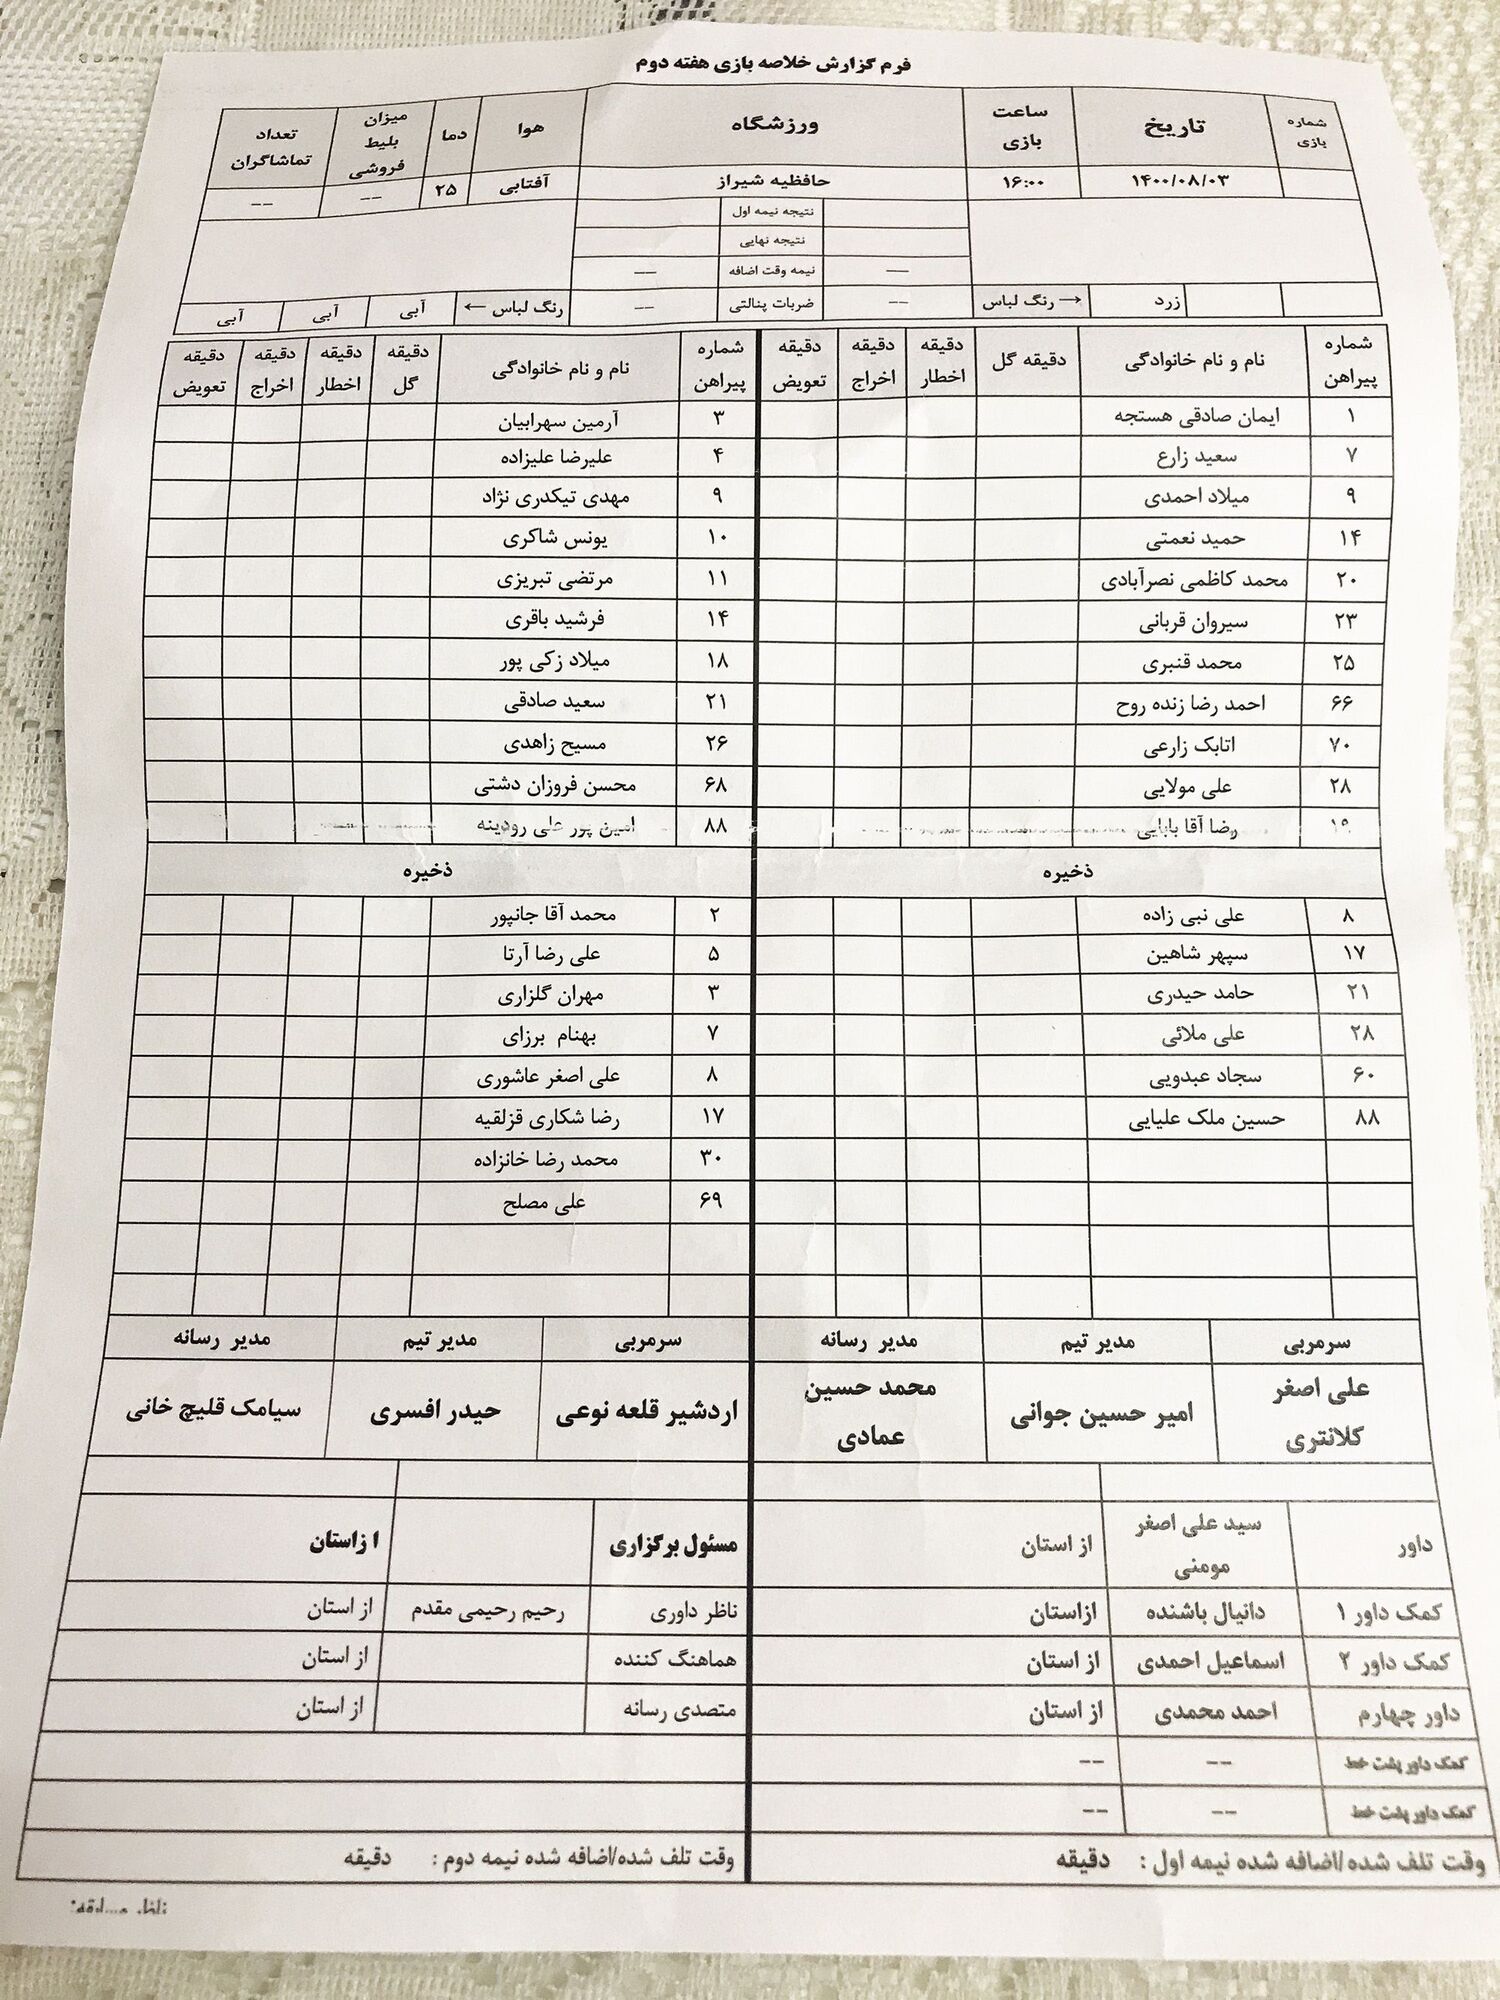 فرم گزارش خلاصه بازی هفته دوم
شماره بازی تاریخ ساعت بازی ورزشگاه هوا دما میزان بلیط فروشی تعداد تماشاگران
۱۴۰۰/۰۸/۰۳ ۱۶:۰۰ حافظیه شیراز آفتابی ۲۵ -- --
نتیجه نیمه اول
نتیجه نهایی
-- نیمه وقت اضافه --
زرد → رنگ لباس -- ضربات پنالتی -- رنگ لباس ← آبی آبی آبی
شماره پیراهن نام و نام خانوادگی دقیقه گل دقیقه اخطار دقیقه اخراج دقیقه تعویض شماره پیراهن نام و نام خانوادگی دقیقه گل دقیقه اخطار دقیقه اخراج دقیقه تعویض
۱ ایمان صادقی هستجه ۳ آرمین سهرابیان
۷ سعید زارع ۴ علیرضا علیزاده
۹ میلاد احمدی ۹ مهدی تیکدری نژاد
۱۴ حمید نعمتی ۱۰ یونس شاکری
۲۰ محمد کاظمی نصرآبادی ۱۱ مرتضی تبریزی
۲۳ سیروان قربانی ۱۴ فرشید باقری
۲۵ محمد قنبری ۱۸ میلاد زکی پور
۶۶ احمد رضا زنده روح ۲۱ سعید صادقی
۷۰ اتابک زارعی ۲۶ مسیح زاهدی
۲۸ علی مولایی ۶۸ محسن فروزان دشتی
۱۹ رضا آقا بابایی ۸۸ امین پور علی رودینه
ذخیره ذخیره
۸ علی نبی زاده ۲ محمد آقا جانپور
۱۷ سپهر شاهین ۵ علی رضا آرتا
۲۱ حامد حیدری ۳ مهران گلزاری
۲۸ علی ملائی ۷ بهنام برزای
۶۰ سجاد عبدویی ۸ علی اصغر عاشوری
۸۸ حسین ملک علیایی ۱۷ رضا شکاری قزلقیه
۳۰ محمد رضا خانزاده
۶۹ علی مصلح
سرمربی مدیر تیم مدیر رسانه سرمربی مدیر تیم مدیر رسانه
علی اصغر کلانتری امیر حسین جوانی محمد حسین عمادی اردشیر قلعه نوعی حیدر افسری سیامک قلیچ خانی
داور سید علی اصغر مومنی از استان مسئول برگزاری ا زاستان
کمک داور ۱ دانیال باشنده ازاستان ناظر داوری رحیم رحیمی مقدم از استان
کمک داور ۲ اسماعیل احمدی از استان هماهنگ کننده از استان
داور چهارم احمد محمدی از استان متصدی رسانه از استان
کمک داور پشت خط -- --
کمک داور پشت خط -- --
وقت تلف شده/اضافه شده نیمه اول : دقیقه وقت تلف شده/اضافه شده نیمه دوم : دقیقه